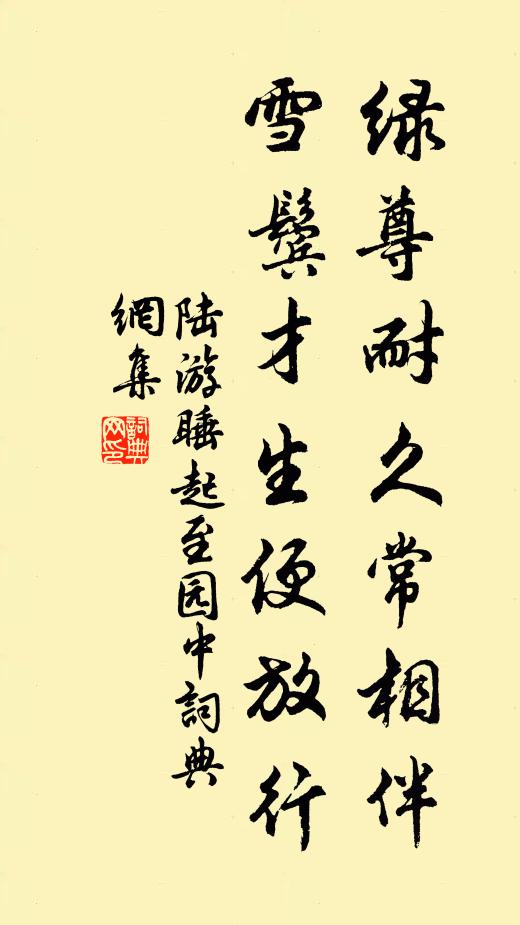 绿尊耐久常相伴
雪鬓才生便放行
陆游睡起至园中詞典
網集
詞典网印